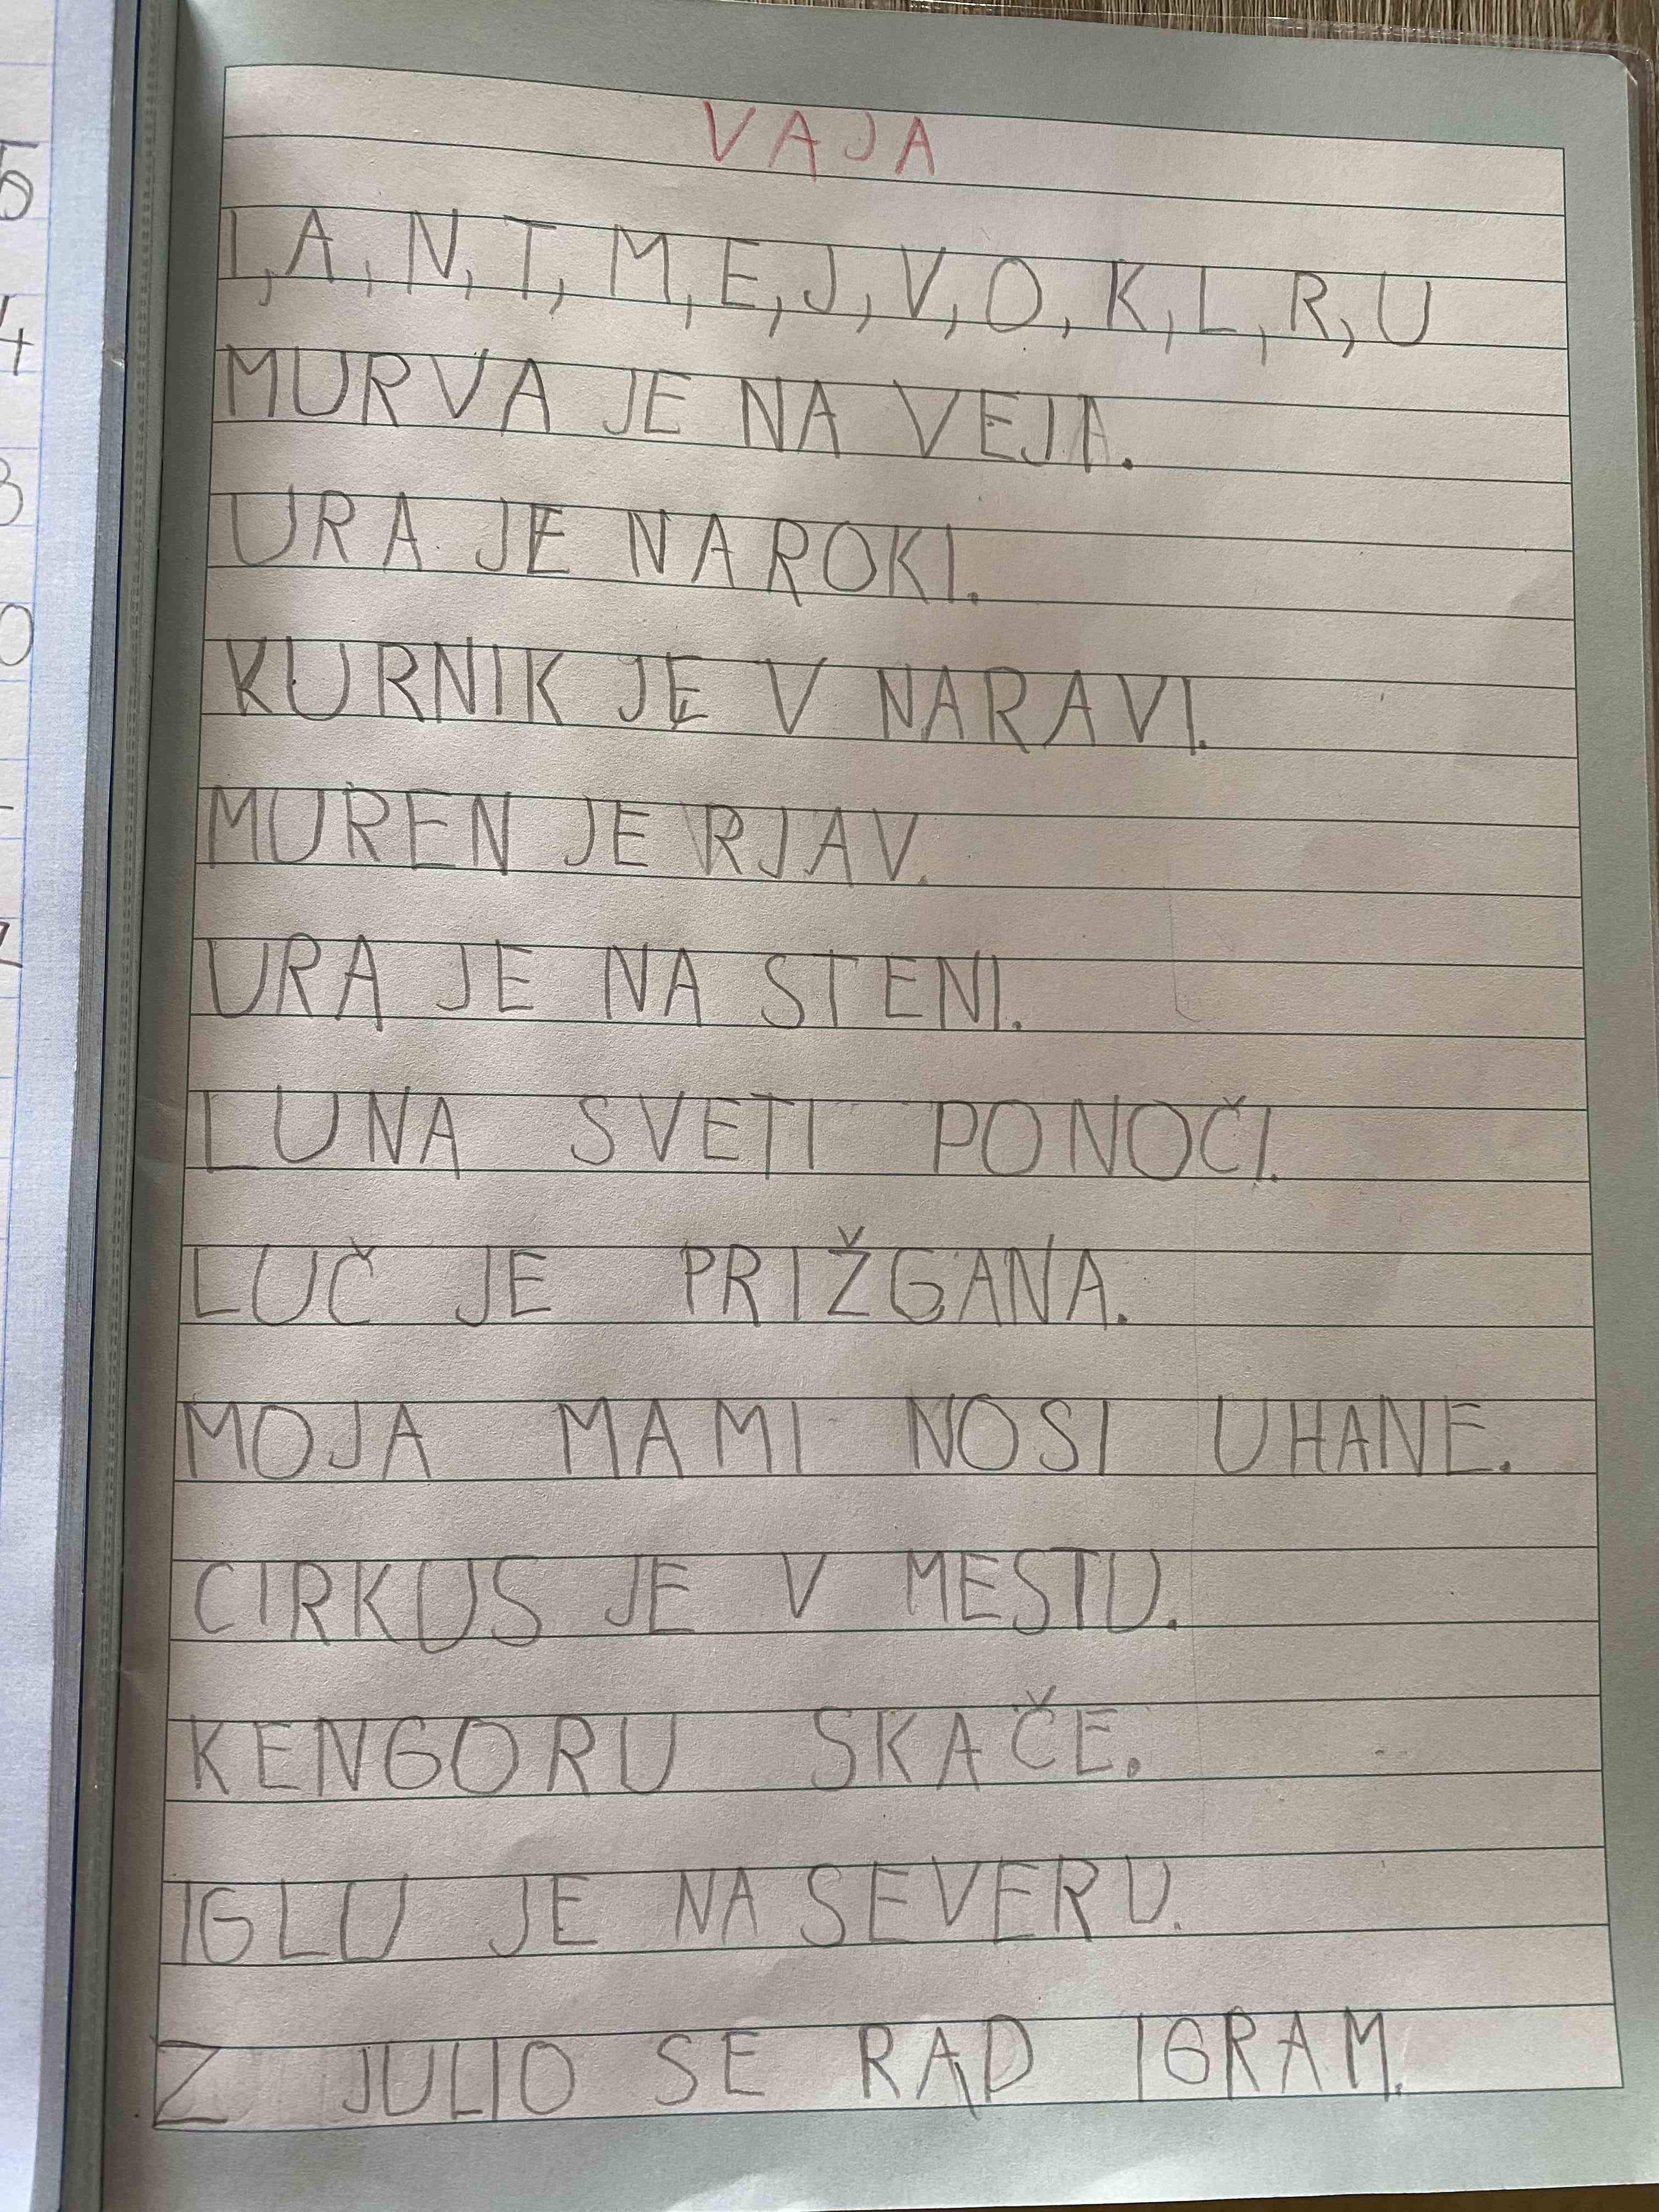 VAJA
I, A, N, T, M, E, J, V, O, K, L, R, U
MURVA JE NA VEJI.
URA JE NA ROKI.
KURNIK JE V NARAVI.
MUREN JE RJAV.
URA JE NA STENI.
LUNA SVETI PONOČI.
LUČ JE PRIŽGANA.
MOJA MAMI NOSI UHANE.
CIRKUS JE V MESTU.
KENGORU SKAČE.
IGLU JE NA SEVERU.
Z JULIO SE RAD IGRAM.